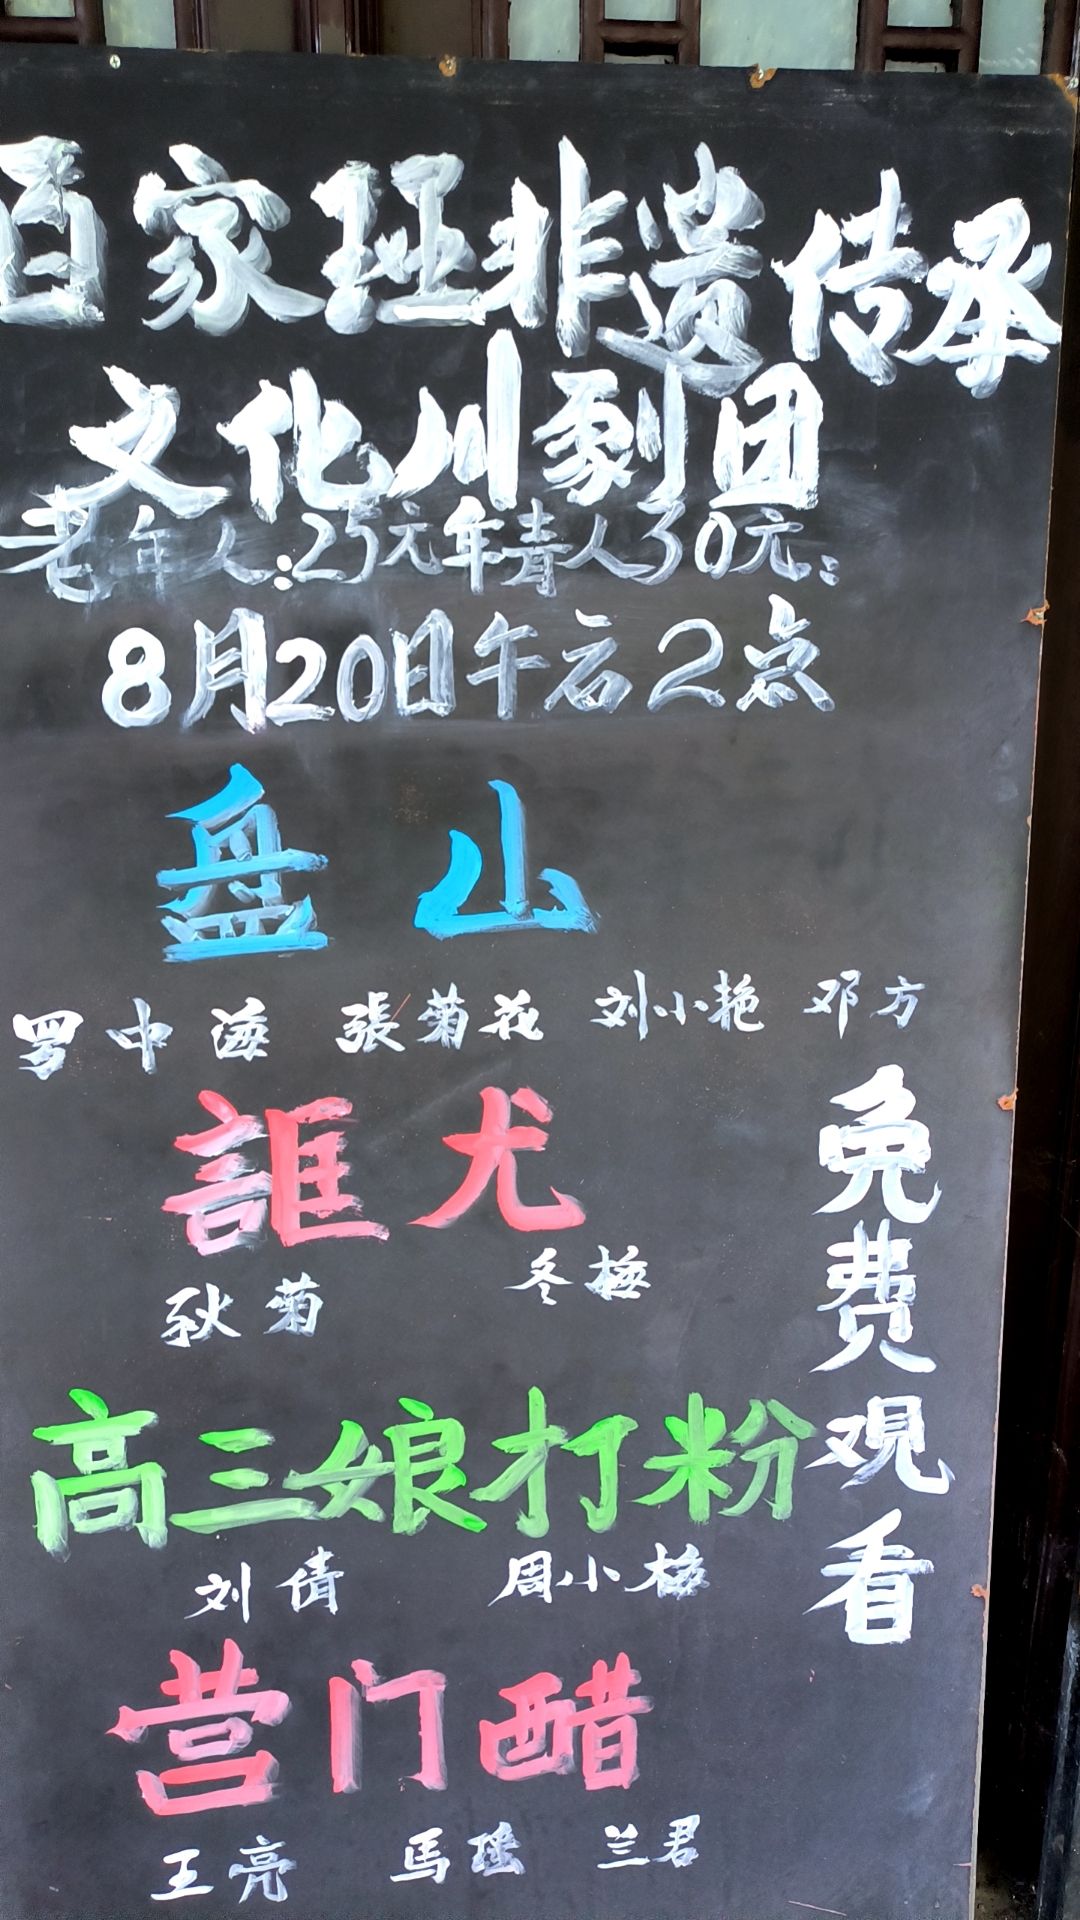 百家班非遗传承
文化川剧团
老年人:25元年青人30元:
8月20日午后2点
盘山
罗中海 張菊花 刘小艳 邓方
誆尤
秋菊 冬梅
高三娘打粉
刘倩 周小梅
营门醋
王亮 馬瑶 兰君
免费观看